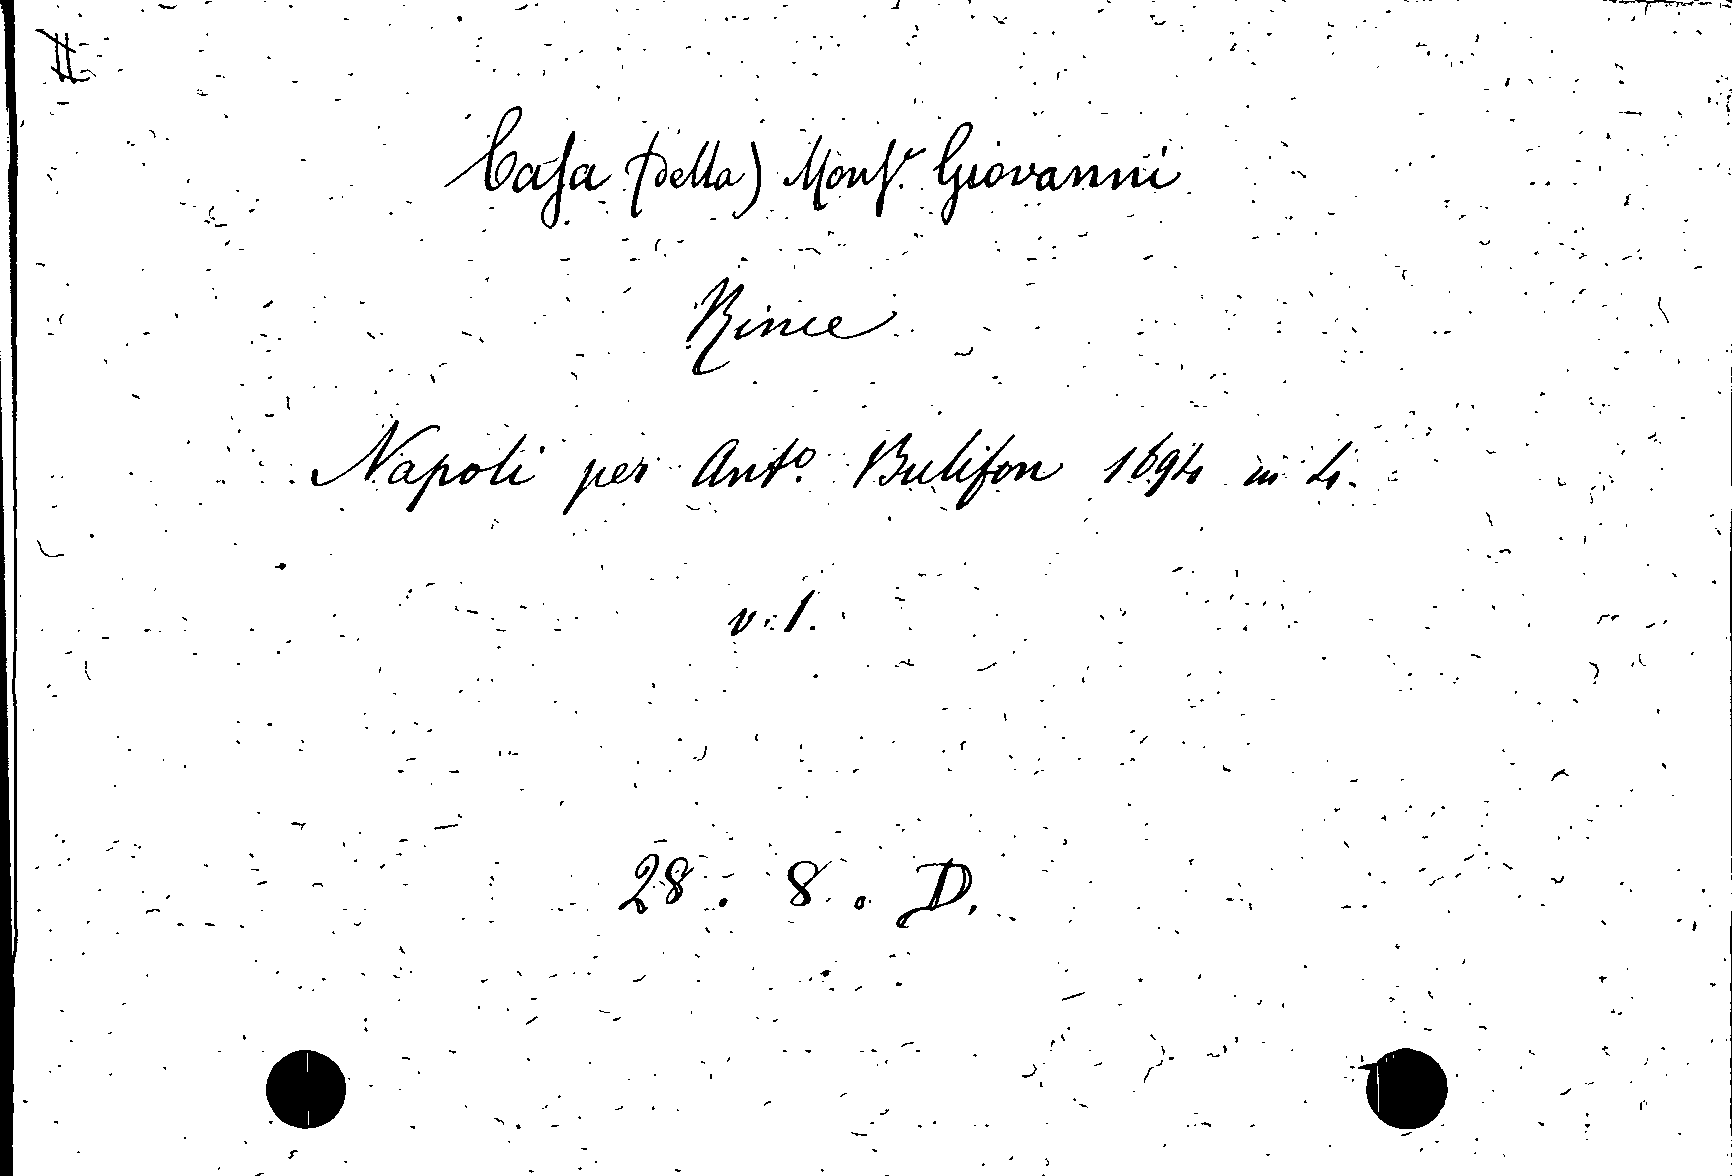 #
Casa (della) Mons.r Giovanni
Rime
Napoli per Ant.o Bulifon 1694 in 4.
v. 1.
28. 8. D.